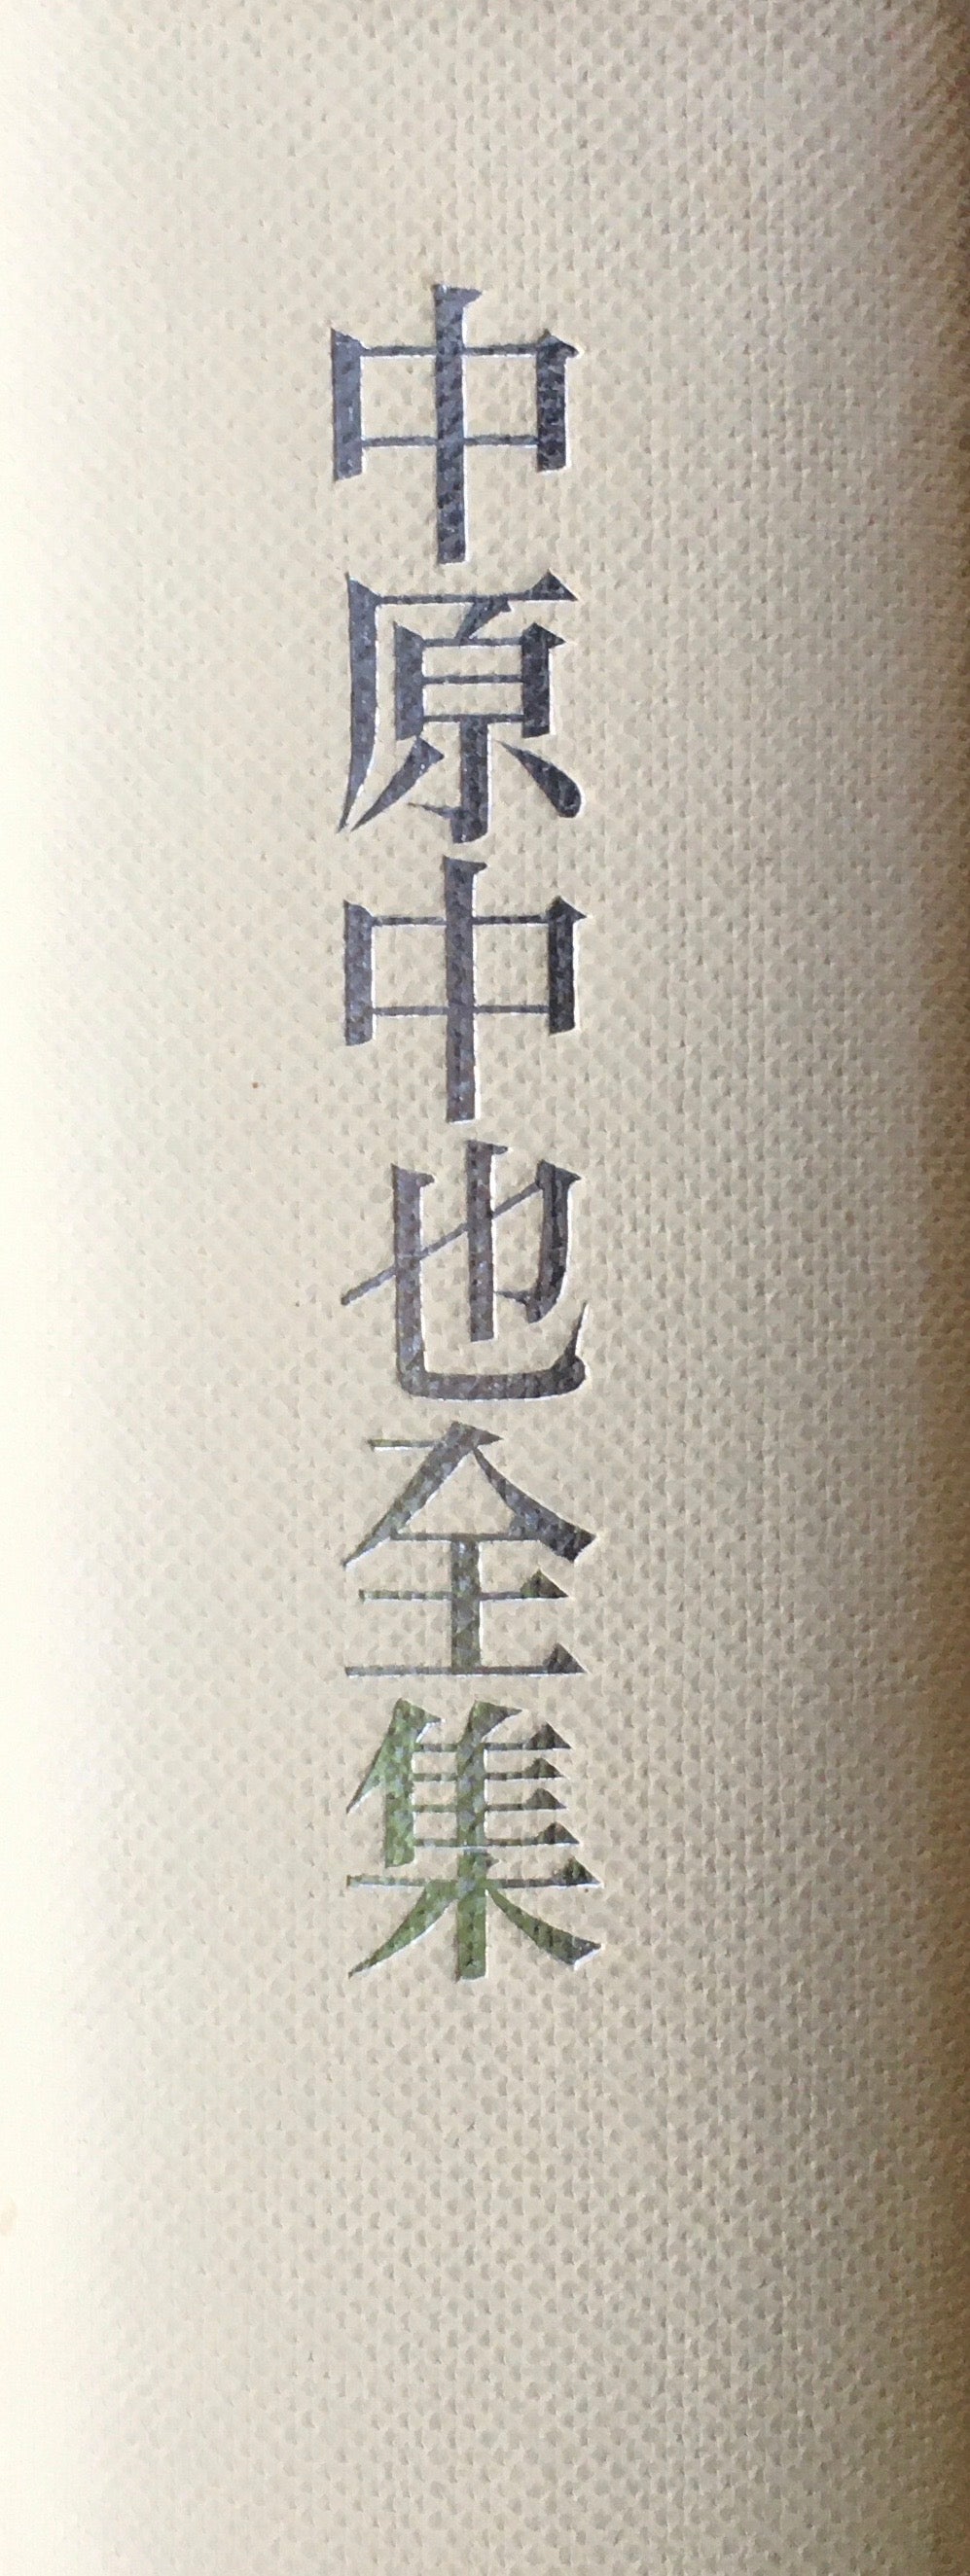 中原中也全集